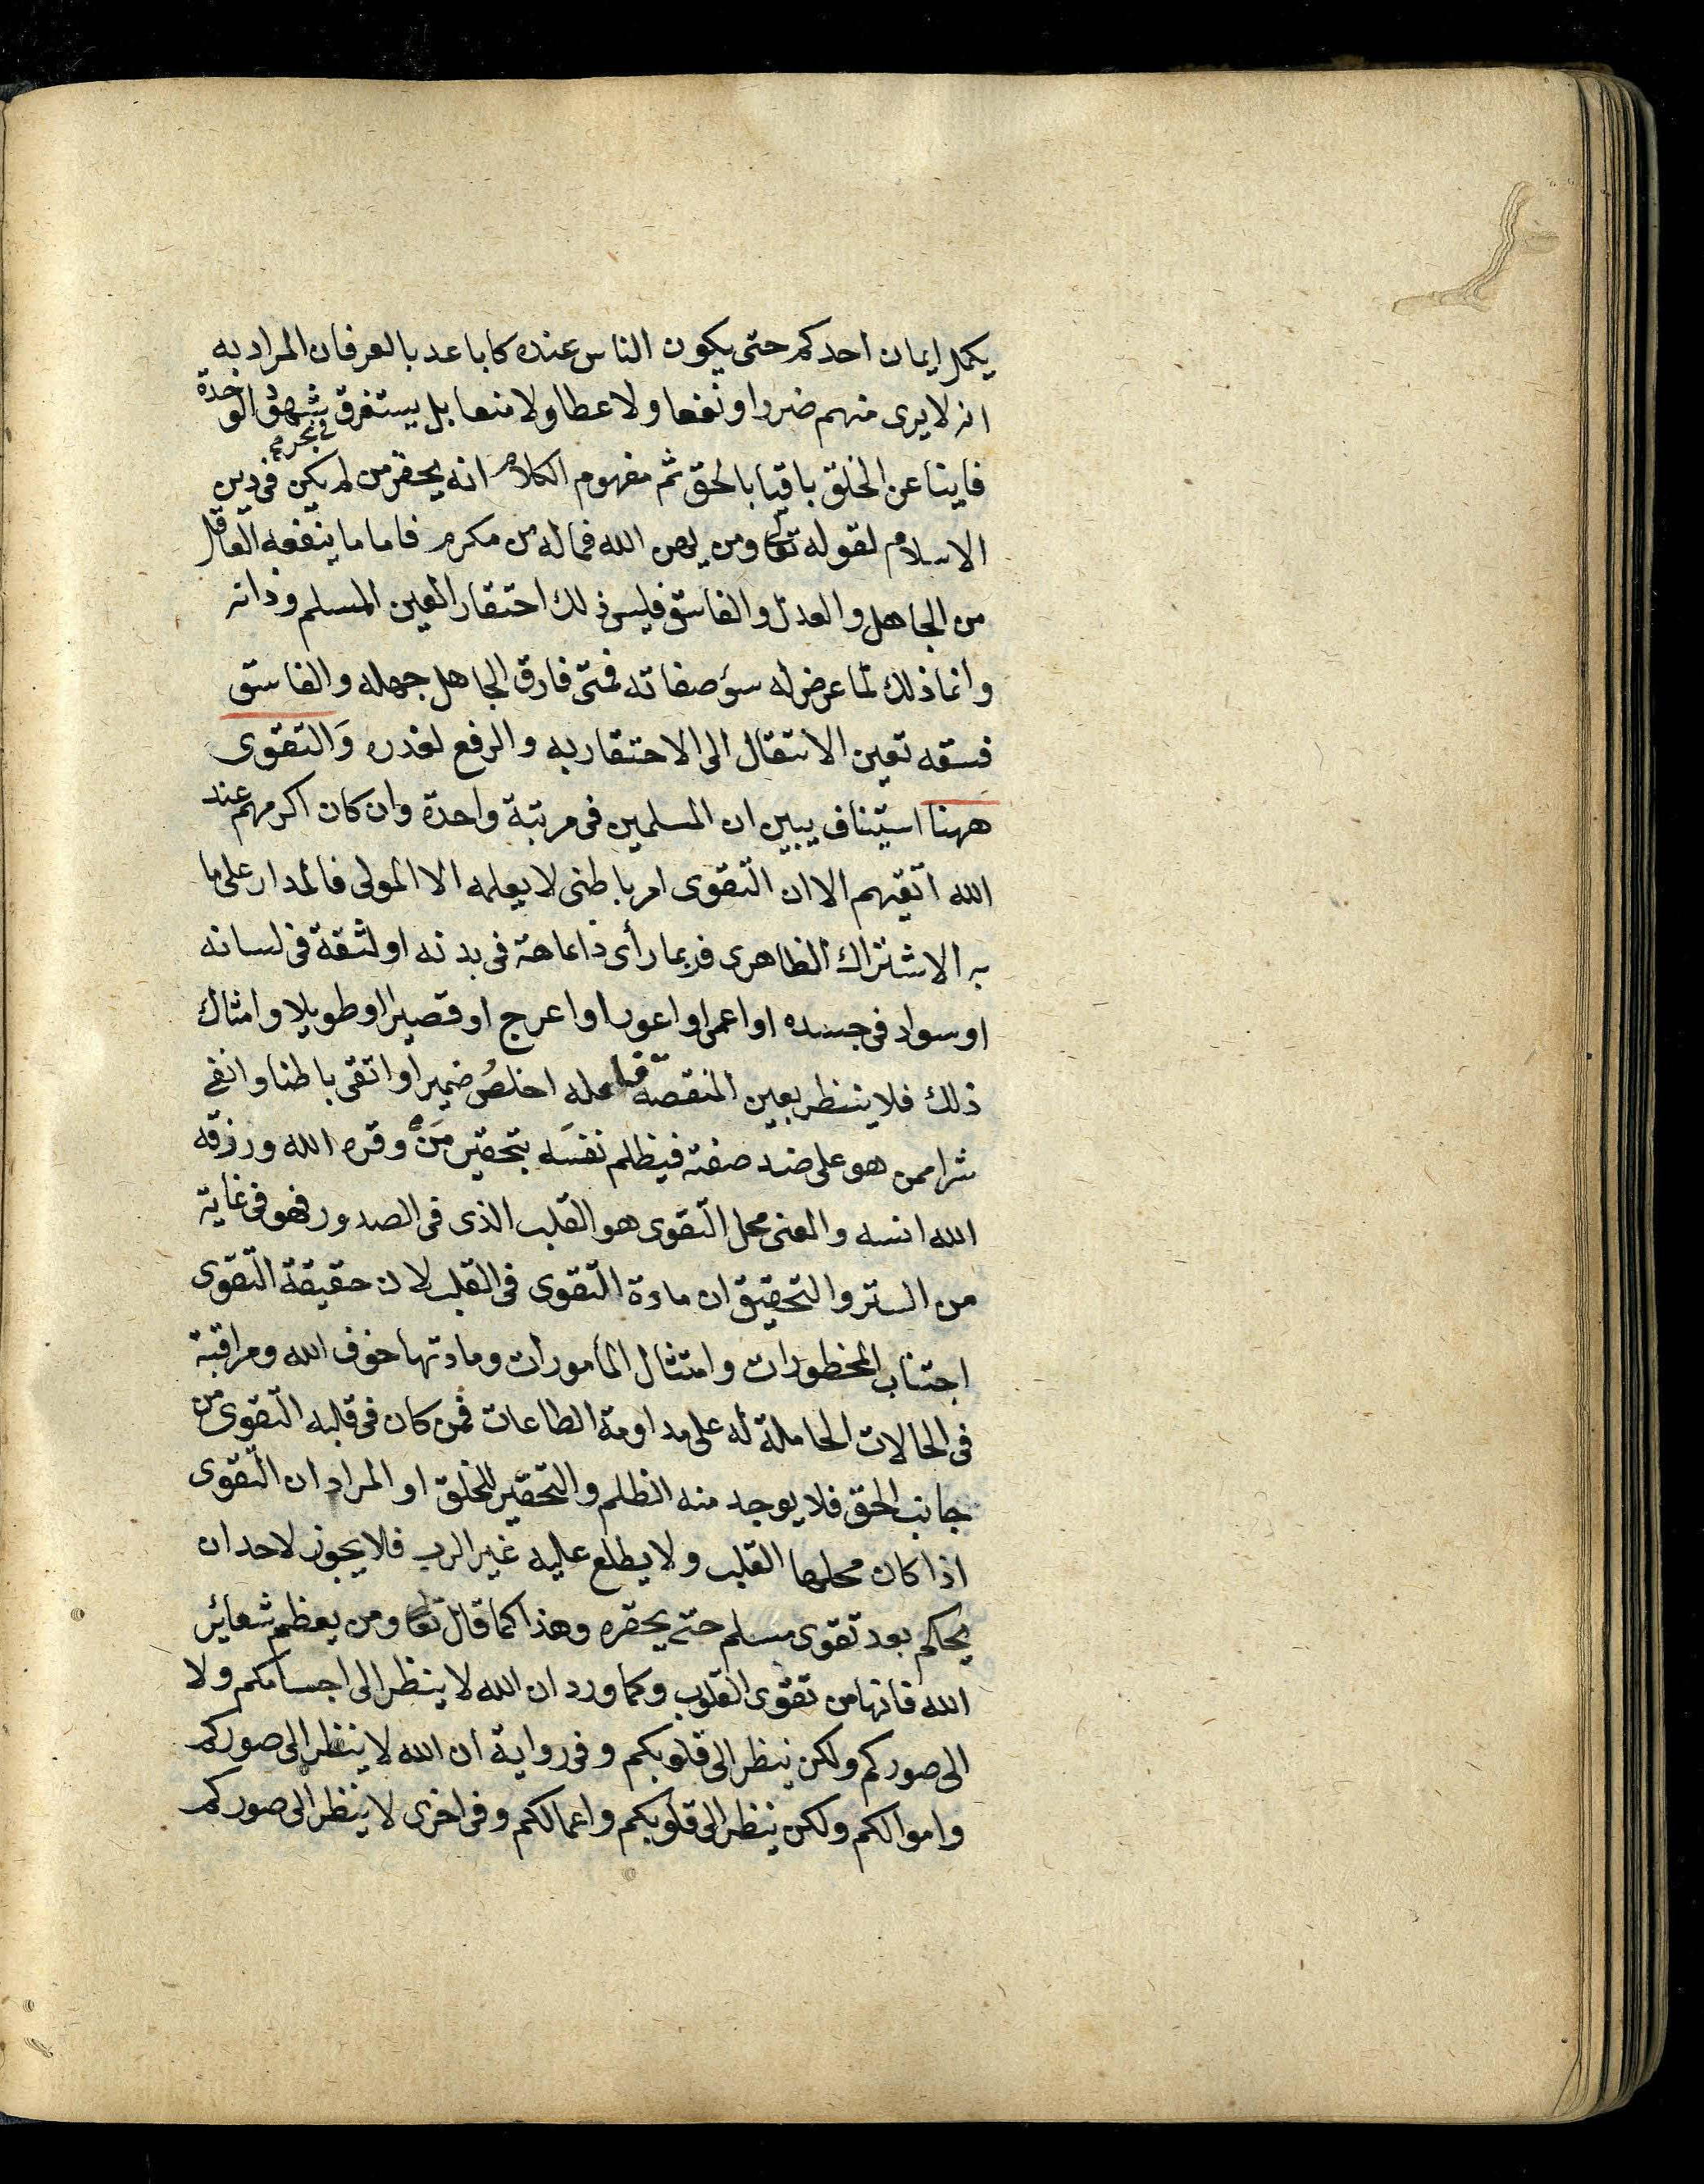 يكمل ايمان احدكم حتى يكون الناس عنده كاباعد بالعرفان المراد به
انه لا يرى منهم ضررا ونفعا ولا عطا ولا منعا بل يستغرق بشهود الوحدة
فاينا عن الخلق باقيا بالحق ثم مفهوم الكلام انه يحقر من لم يكن في دين
الاسلام لقوله تعالى ومن يهن الله فماله من مكرم فاما ما ينفعه العاقل
من الجاهل والعدل والفاسق فليس ذلك احتقار العين المسلم وذاته
وانما ذلك لما عرض له سؤ صفاته فمتى فارق الجاهل جهله والفاسق
فسقه تعين الانتقال الى الاحتقار به والرفع لقدره وَالتقوى
ههنا استيناف يبين ان المسلمين فى مرتبة واحدة وان كان اكرمهم عند
الله اتقيهم الا ان التقوى امر باطنى لا يعلمه الا المولى فالمدار على ما
به الاشتراك الظاهرى فربما رأى ذا عاهة فى بدنه او لثقة فى لسانه
او سواد فى جسده او اعمى او اعور او اعرج او قصيرا او طويلا وامثال
ذلك فلا ينظر بعين المنقصة فلعله اخلصُ ضميرا او اتقى باطنا وانقى
شرا ممن هو على ضد صفته فيظلم نفسَه بتحقير مَنْ وقره الله ورزقه
الله انسه والمعنى محل التقوى هو القلب الذى فى الصدور فهو فى غاية
من الستر والتحقيق ان مادة التقوى فى القلب لان حقيقة التقوى
اجتناب المحظورات وامتثال المأمورات ومادتها خوف الله ومراقبة
فى الحالات الحاملة له على مداومة الطاعات فمن كان فى قلبه التقوى من
جانب الحق فلا يوجد منه الظلم والتحقير للخلق او المراد ان التقوى
اذا كان محلها القلب ولا يطلع عليه غير الرب فلا يجوز لاحد ان
يحكم بعد تقوى مسلم حتى يحقره وهذا كما قال تعالى ومن يعظم شعائر
الله فانها من تقوى القلوب وكما ورد ان الله لا ينظر الى اجسامكم ولا
الى صوركم ولكن ينظر الى قلوبكم وفى رواية ان الله لا ينظر الى صوركم
واموالكم ولكن ينظر الى قلوبكم واعمالكم وفى اخرى لا ينظر الى صوركم